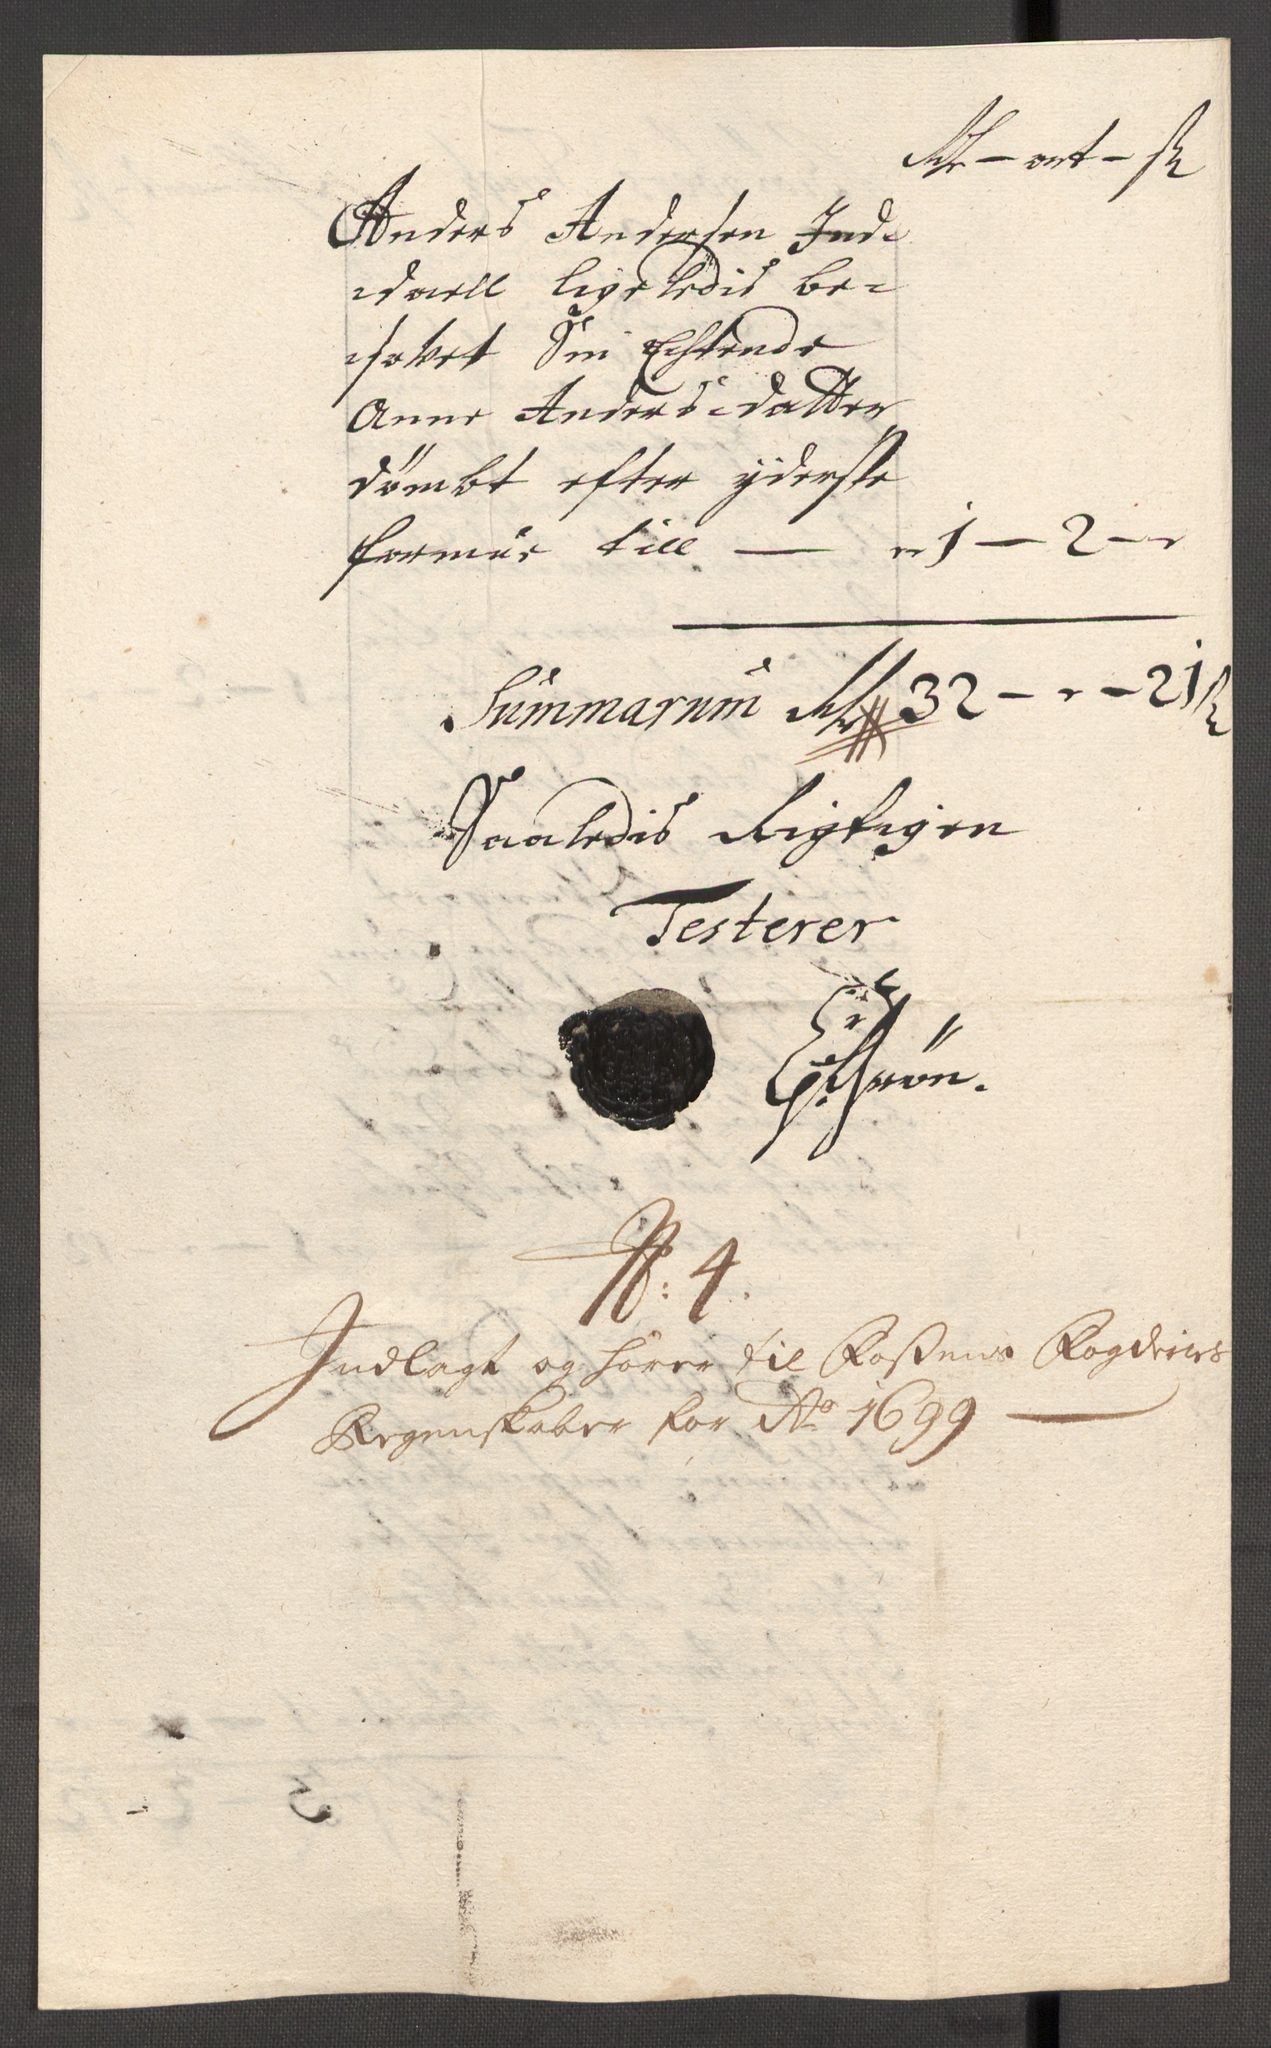 Rdr – ort – sk
Anders Andersen Ind-
daell ligeledis be-
sovet Sin Echtende
Anne Anders-datter
dömbt efter ÿderste
formue till — "1 – 2 – "
Summarum Rdr 32 – " – 21 sk
Saaledis Rigtigen
Testerer
Grön.
N: 4.
Indlagt og hörer til Foßens Fogderies
Regenskaber for Ao 1699